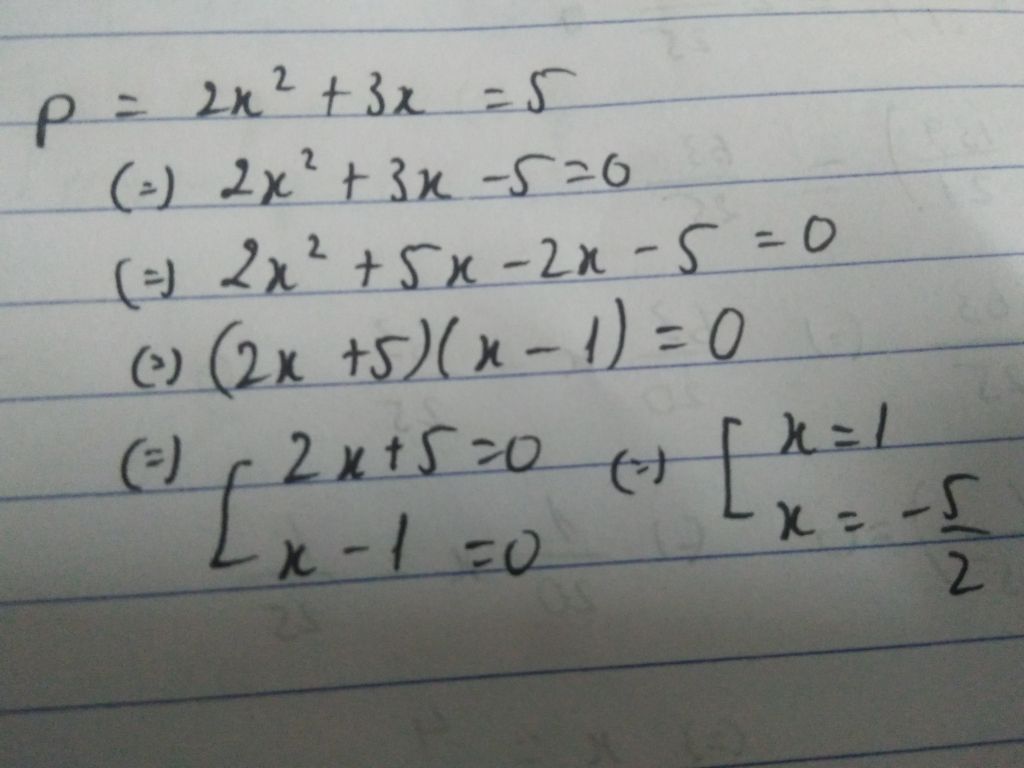 P = 2x² + 3x = 5
(=) 2x² + 3x - 5 = 0
(=) 2x² + 5x - 2x - 5 = 0
(=) (2x + 5)(x - 1) = 0
(=) [ 2x + 5 = 0 (=) [ x = 1
x - 1 = 0 x = -5/2